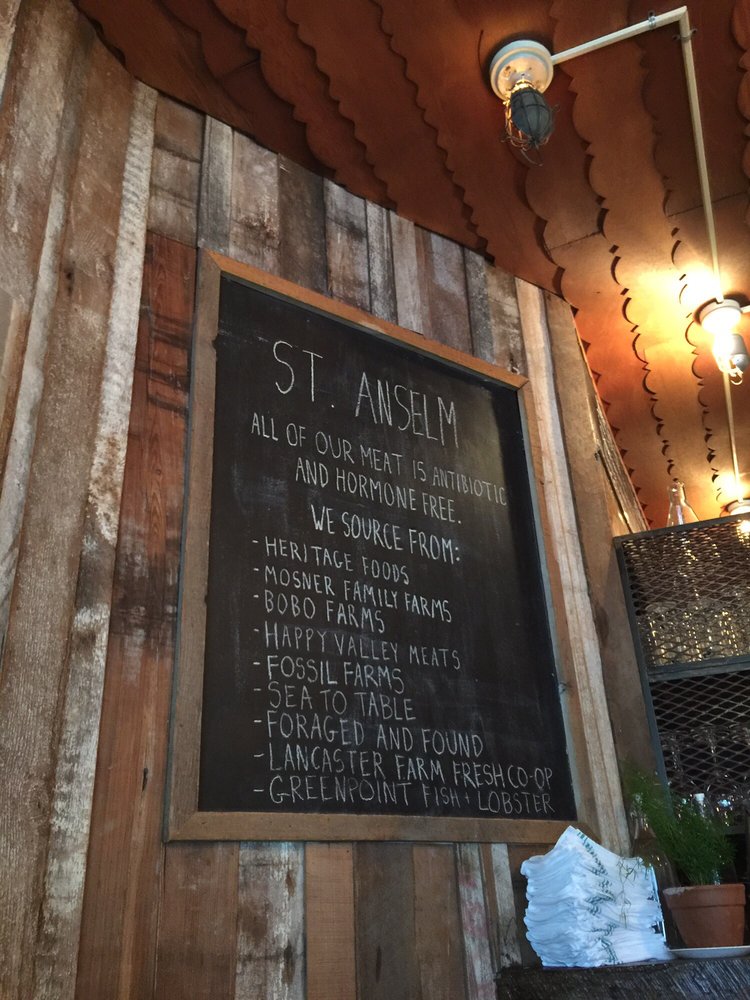 ST. ANSELM
ALL OF OUR MEAT IS ANTIBIOTIC
AND HORMONE FREE.
WE SOURCE FROM:
- HERITAGE FOODS
- MOSNER FAMILY FARMS
- BOBO FARMS
- HAPPY VALLEY MEATS
- FOSSIL FARMS
- SEA TO TABLE
- FORAGED AND FOUND
- LANCASTER FARM FRESH CO-OP
- GREENPOINT FISH + LOBSTER